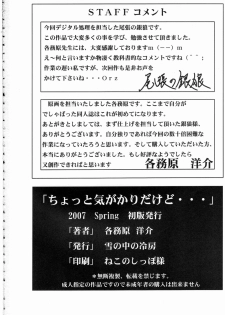 STAFFコメント
今回デジタル処理を担当した尾張の銀狼です。
この作品で大変多くの事を学び、勉強させて頂きました。
各務原先生には、大変感謝しております m(－－)m
え～何と言いますか物凄く教科書的なコメントですね(^^;
作業の遅い私ですが、次回作も是非お声を
かけて下さいね・・・Orz
尾張の銀狼
原画を担当いたしました各務原です。ここまで自分が
でしゃばった同人誌はこれが初めてになります。
あとがきとしましては、まず仕上げを担当して頂いた銀狼様、
ありがとうございます。自分独りであれば今回の数十倍困難な
作業になっていたろうと思います。そして購入していただいた方、
本当にありがとうございました。もし好評なようでしたら
又創作できればと思います
各務原 洋介
「ちょっと気がかりだけど・・・」
2007 Spring 初版発行
「著者」 各務原 洋介
「発行」 雪の中の冷房
「印刷」 ねこのしっぽ様
＊無断複製、転載を禁じます。
成人指定の作品ですので未成年者の購入は出来ません